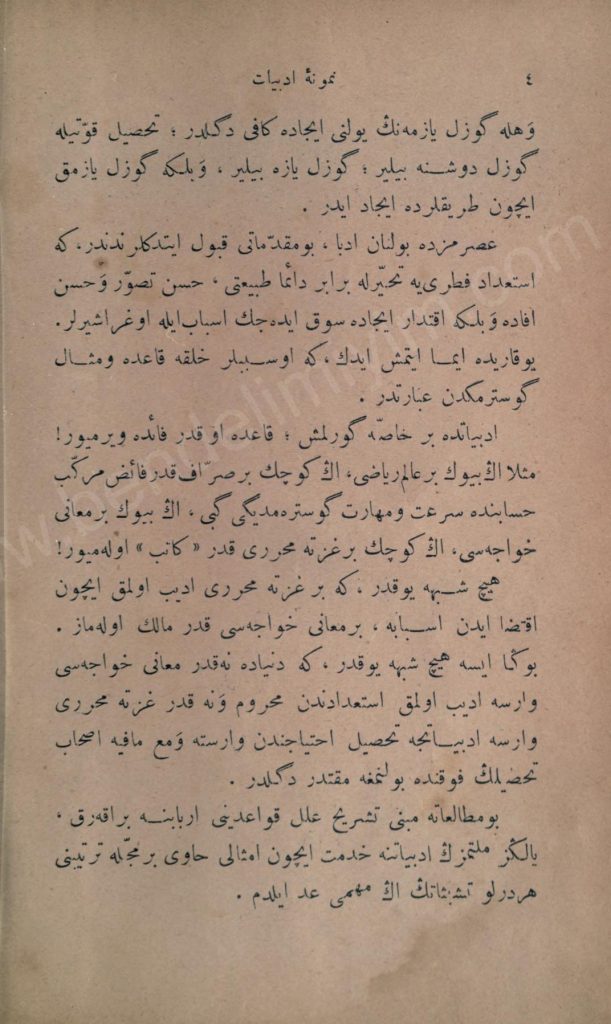 ٤ نمونهٔ ادبیات
وَهله گوزل یازمه‌نڭ یولنی ایجاده كافی دگلدر ؛ تحصیل قوّتیله
گوزل دوشنه بیلیر ؛ گوزل یازه بیلیر ، وَبلكه گوزل یازمق
ایچون طریقلرده ایجاد ایدر .
عصرمزده بولنان ادبا ، بومقدّماتی قبول ایتدكلرندندر، كه
استعداد فطری‌یه تحیّرله برابر دائما طبیعتی ، حسن تصوّر وَحسن
افاده وَبلكه اقتدار ایجاده سوق ایده‌جك اسباب ایله اوغراشیرلر.
یوقاریده ایما ایتمش ایدك ، كه اوسببلر خلقه قاعده ومثال
گوسترمكدن عبارتدر .
ادبیاتده بر خاصّه گورلمش ؛ قاعده او قدر فائده ویرمیور!
مثلا اڭ بیوك بر عالم ریاضی، اڭ كوچك بر صرّاف قدر فائض مركّب
حسابنده سرعت ومهارت گوستره‌مدیگی گبی ، اڭ بیوك بر معانی
خواجه‌سی، اڭ كوچك بر غزته محرری قدر «كاتب» اوله‌میور!
هیچ شبهه یوقدر ، كه بر غزته محرری ادیب اولمق ایچون
اقتضا ایدن اسبابه ، بر معانی خواجه‌سی قدر مالك اوله‌ماز .
بوڭا ایسه هیچ شبهه یوقدر ، كه دنیاده نه‌قدر معانی خواجه‌سی
وارسه ادیب اولمق استعدادندن محروم وَنه قدر غزته محرری
وارسه ادبیاتجه تحصیل احتیاجندن وارسته وَمع مافیه اصحاب
تحصیلڭ فوقنده بولنمغه مقتدر دگلدر .
بومطالعاته مبنی تشریح علل قواعدینی اربابنه براقه‌رق ،
یالڭز ملتمزڭ ادبیاتنه خدمت ایچون امثالی حاوی بر مجله ترتیبنی
هردرلو تشبثاتڭ اڭ مهمی عد ایلدم .